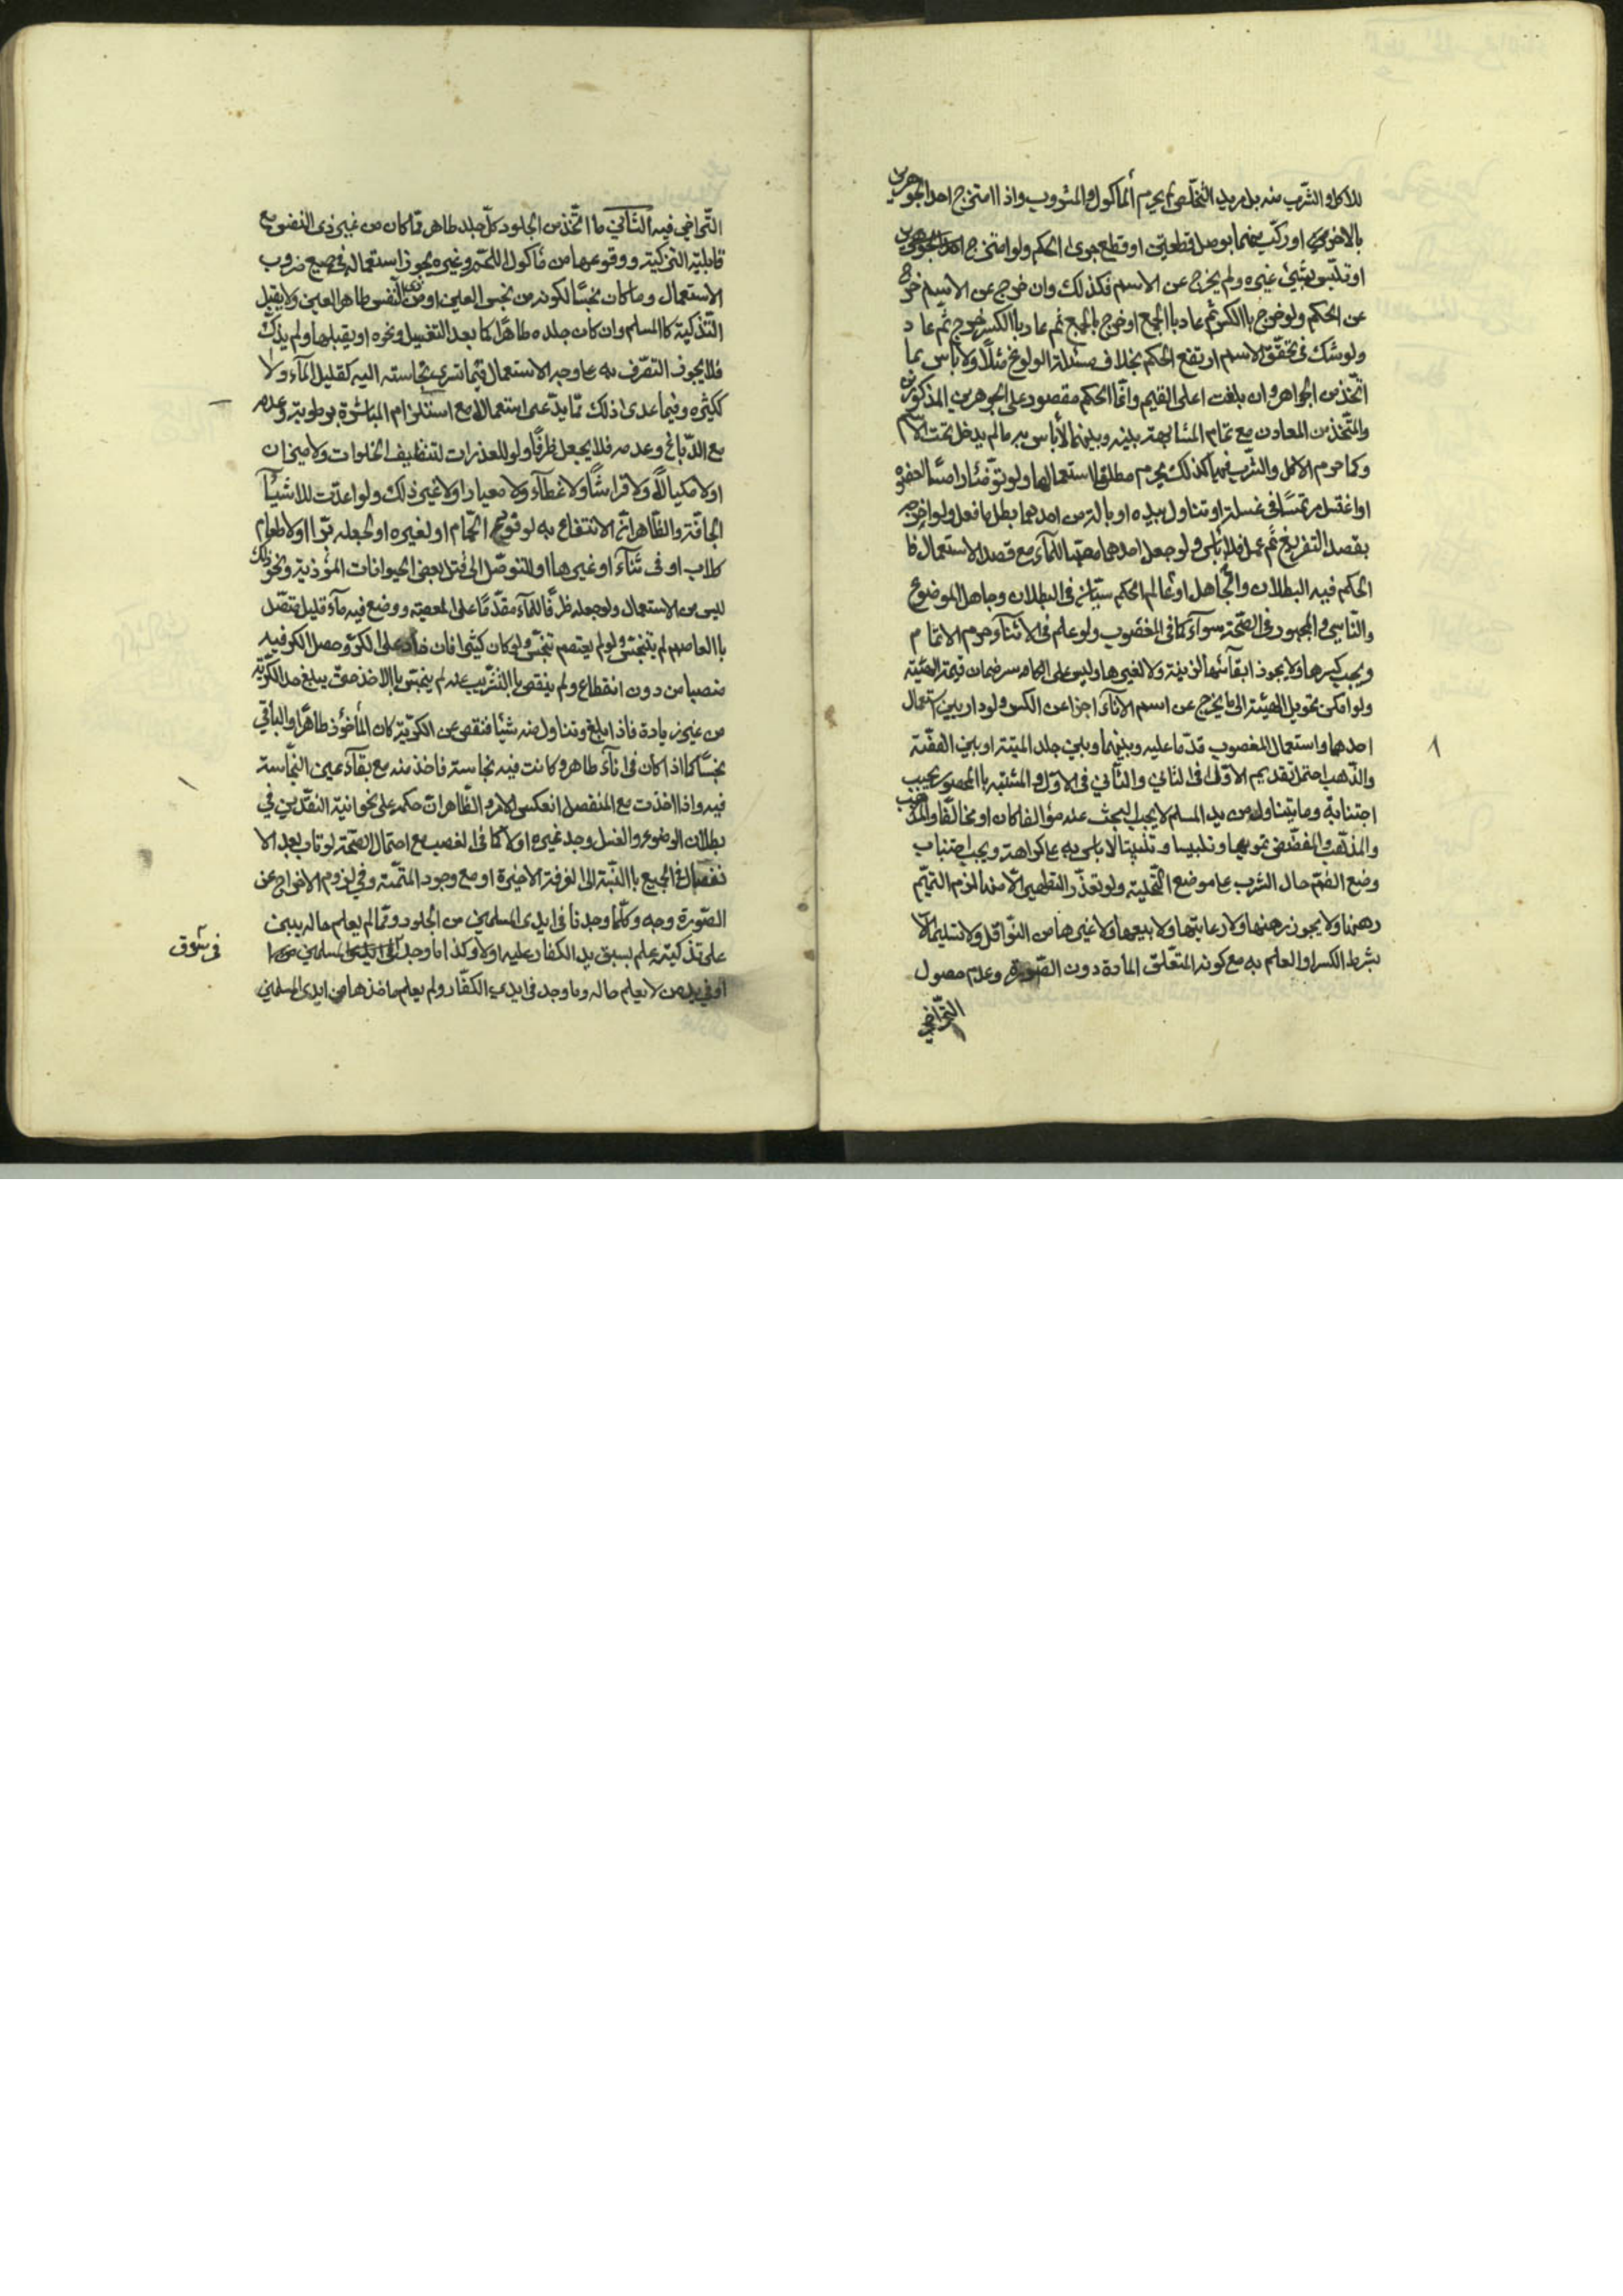 للاكل او الشرب منه بل مريد التخلص لم يحرم المأكول والمشروب واذا امتزج احد الجوهرين
بالاخر او ركّب بينهما بوصل قطعتين او قطع جرى الحكم ولو امتزج احد الجوهرين
او تلبّس بشيئ غيره ولم يخرج عن الاسم فكذلك وان خرج عن الاسم خرج
عن الحكم ولو خرج باالكسر ثم عاد باالجمع او خرج بالجمع ثم عاد باالكسر خرج ثم عاد
ولو شك في تحقّق الاسم ارتفع الحكم بخلاف مسئلة الولوغ مثلًا ولا باس بما
اتّخذ من الجواهر وان بلغت اعلى القيم وانّما الحكم مقصور على الجوهرين المذكورين
والمتّخذ من المعادن مع تمام المشابهة بينه وبينهما لا بأس به ما لم يدخل تحت الاسم
وكما حرم الاكل والشرب فيهما كذلك يحرم مطلق استعمالها ولو توضّئا رامسًا لعضوه
او اغتسل مرتمسًا في غسله او تناول بيده او بالة من احدهما بطل ما فعل ولو اخرجه
بقصد التفريغ ثم عمل فلا باس ولو جعل احدهما مصبّا للمآء مع قصد الاستعمال فا
الحكم فيه البطلان والجاهل او عالم الحكم سيّان في البطلان وجاهل الموضوع
والنّاسي والمجبور في الصّحة سوآء كما في المغصوب ولو علم في الاثنآء حرم الاتمام
ويجب كسرها ولا يجوز ابقائها لزينة ولا لغيرها وليس على الكاسر ضمان قيمة الهيئة
ولو امكن تحويل الهيئة الى ما يخرج عن اسم الانآء اجزا عن الكسر ولو دار بين استعمال
احدهما واستعمال المغصوب قدّما عليه وبينهما وبين جلد الميتة او بين الفضّة
والذّهب احتمل تقديم الاوّل في الثاني والثّاني في الاوّل والمشتبه باالمحصور يجب
اجتنابه وما يتناول من يد المسلم لا يجب البحث عنه مؤالفا كان او مخالفًا
والمذهّب والمفضّض تمويها وتلبيسا وتلبيتا لا باس به على كراهة ويجب اجتناب
وضع الفم حال الشرب على موضع التّحلية ولو تعذّر التطهير الّا منهما لزم التيمّم
رهنها ولا يجوز رهنها ولا رعايتها ولا بيعها ولا غيرها من النّواقل ولا تسليمها الّا
بشرط الكسر او العلم به مع كونه المتعلّق المادة دون الصّورة وعدم حصول
التّراضي
التّراضي فيه الثّاني ما اتّخذ من الجلود كل جلد طاهر ممّا كان من غير ذى النفس مع
قابليّة التذكية ووقوعها من مأكول اللحم وغيره يجوز استعماله في جميع ضروب
الاستعمال وما كان نجسًا لكونه من نجس العين او من ذى النّفس طاهر العين ولا يقبل
التّذكية كاالمسلم وان كان جلده طاهرًا كما بعد التغسيل ونحوه او يقبلها ولم يذكّ
فلا يجوز التصّرف به على وجه الاستعمال فيما تسرى نجاسته اليه كقليل المآء ولا
ككثيره وفيما عدى ذلك ممّا يدّعى استعمالا مع استلزام المباشرة برطوبة وعدمه
مع الدّباغ وعدمه فلا يجعل ظرفًا ولو للعذرات لتنظيف الخلوات ولا ميزان
اولا مكيالًا ولا فراشًا ولا غطآء ولا معيارا ولا غير ذلك ولو اعدّت للاشيآء
الجافّة والظّاهر انّ الانتفاع به لوقود الحّمام او لغيره او لجعله ترابا او لاطعام
كلاب او في بنآء او غيرها او للتّوصّل الى قتل بعض الحيوانات المؤذية ونحو ذلك
ليس من الاستعمال ولو جعله ظرفًا للمآء مقدّمًا على المعصية ووضع فيه مآء قليل متصّل
باالعاصم لم يتنجّس ولو لم يعتصم تنجّس ولو كان كثيرا فان زاد على الكرّ وحصل الكر فيه
منصبا من دون انقطاع ولم ينقص باالتّشريب عنه لم ينجّس باالاخذ حتى يبلغ حد الكرّية
من غير زيادة فاذا بلغ وتناول منه شيئا فنقص عن الكرّية كان المأخوذ طاهرًا والباقي
نجسًا كما اذا كان في انآء طاهر وكانت فيه نجاسة فاخذ منه مع بقآء عين النّجاسة
فيه واذا اخذت مع المنفصل انعكس الامر والظّاهر انّ حكمه على نحو انية النقدين في
بطلان الوضوء والغسل وجد غيره اولا كما في الغصب مع احتمال الصّحة لو تاب بعد الا
نفصال في الجميع باالنّسبة الى الغرفة الاخيرة او مع وجود المتمّمة وفي لزوم الاخراج عن
الصّورة وجه وكلّما وجدنا في ايدى المسلمين من الجلود وممّا لم يعلم حاله يبنى
على تذكيته علم بسبق يد الكفار عليه اولا وكذا ما وجد في ايدى المسلمين
في سوق
او في يد من لا يعلم حاله وما وجد في ايدى الكفّار ولم يعلم ماخذها من ايدى المسلمين